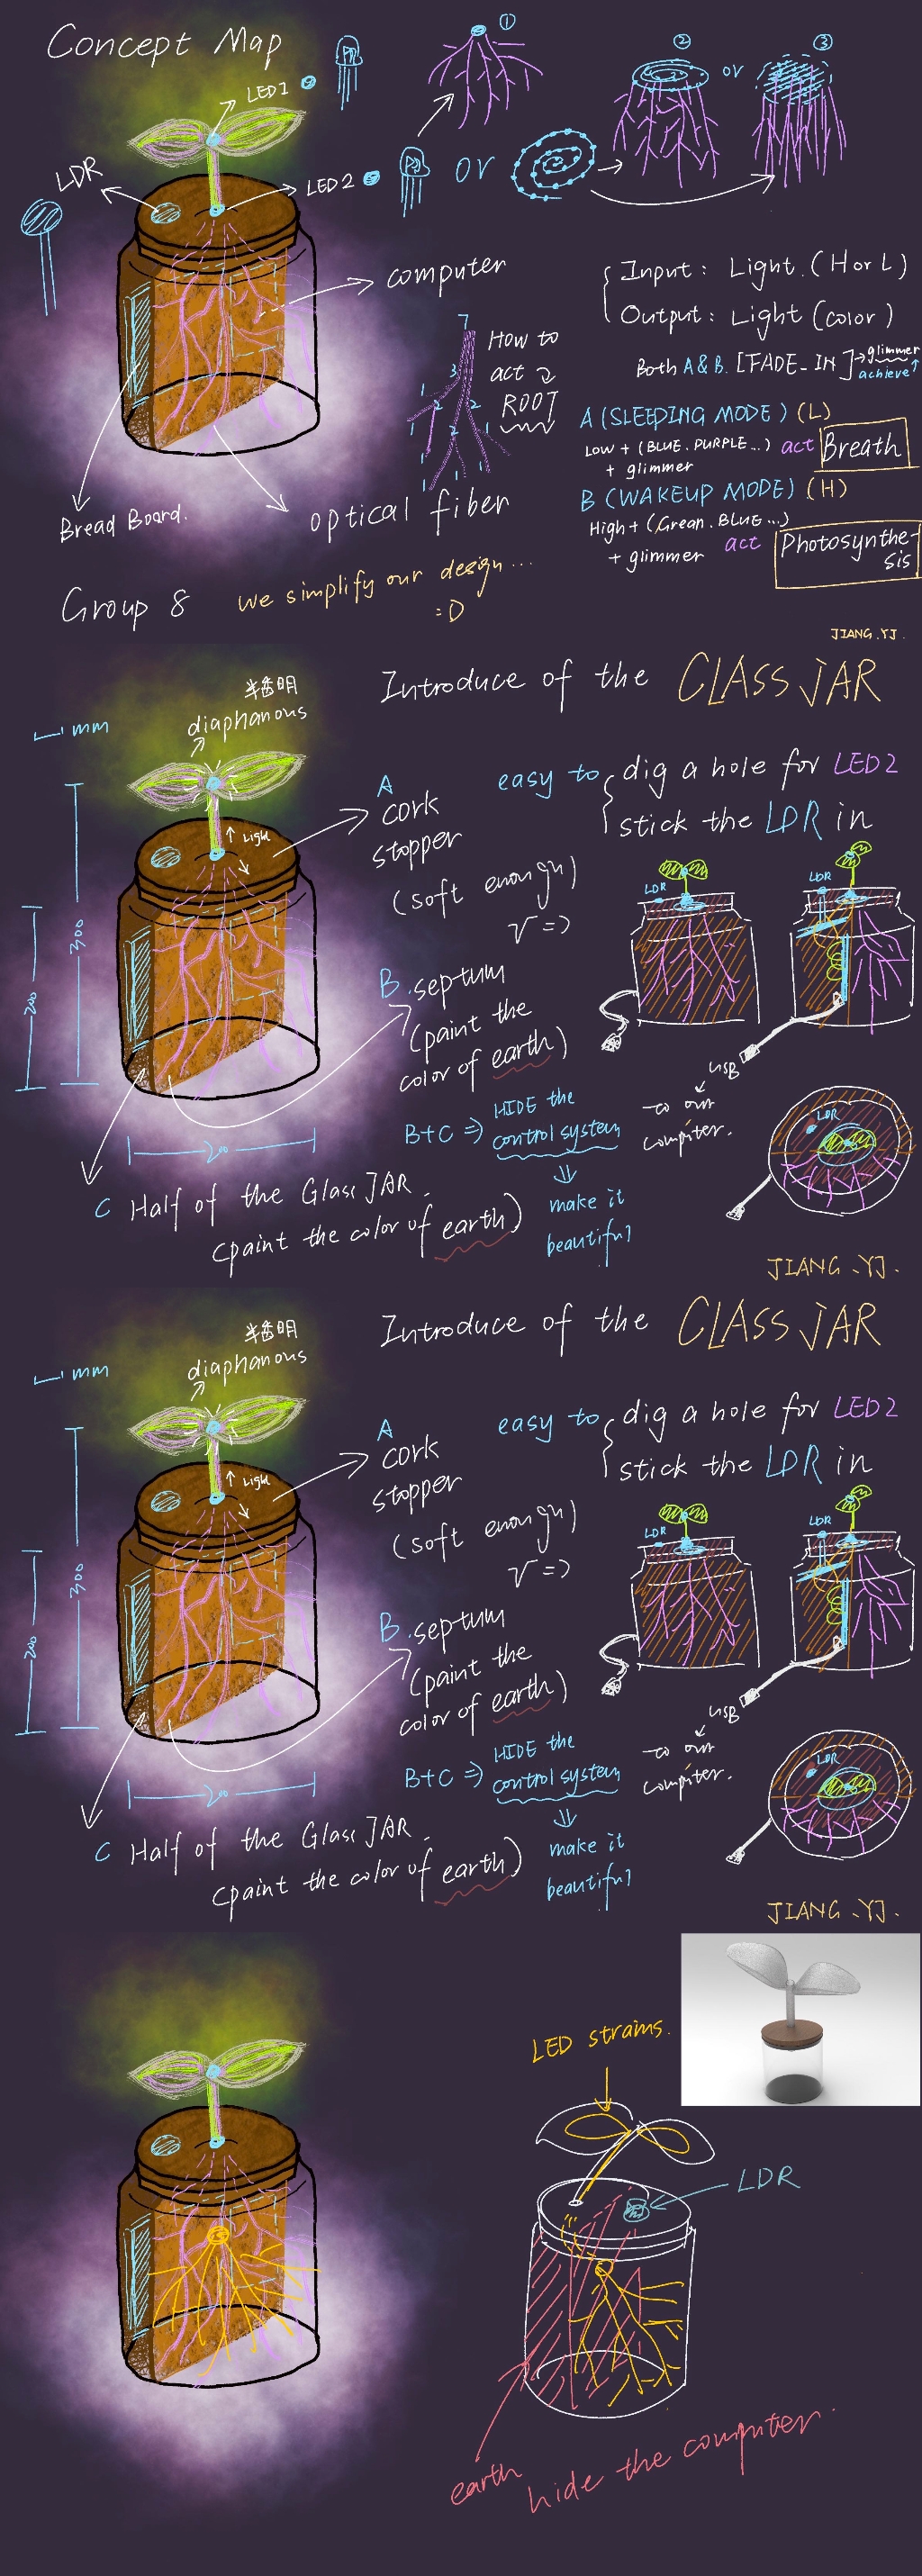 Concept Map
LED1
①
②
or
③
LDR
LED2
or
computer
Input: Light. (H or L)
Output: Light (color)
Both A&B. [FADE-IN] → glimmer
achieve ↑
7
3
2
2
1
1
1
1
1
1
1
How to
act
ROOT
A (SLEEPING MODE) (L)
Low + (BLUE. PURPLE...) act Breath
+ glimmer
B (WAKEUP MODE) (H)
High + (Grean. BLUE...)
+ glimmer act Photosynthe-
sis
Bread Board.
optical fiber
Group 8
we simplify our design...
=D
JIANG.YJ.
Introduce of the CLASS JAR
半透明
diaphanous
mm
easy to
dig a hole for LED2
stick the LDR in
A
cork
stopper
(soft enough)
Light
300
200
200
LDR
LDR
B. septum
(paint the
color of earth)
USB
to our
computer.
B+C => HIDE the
control system
make it
beautiful
LDR
C Half of the Glass JAR
(paint the color of earth)
JIANG.YJ.
Introduce of the CLASS JAR
半透明
diaphanous
mm
easy to
dig a hole for LED2
stick the LDR in
A
cork
stopper
(soft enough)
Light
300
200
200
LDR
LDR
B. septum
(paint the
color of earth)
USB
to our
computer.
B+C => HIDE the
control system
make it
beautiful
LDR
C Half of the Glass JAR
(paint the color of earth)
JIANG.YJ.
LED strains.
LDR
earth
hide the computer.